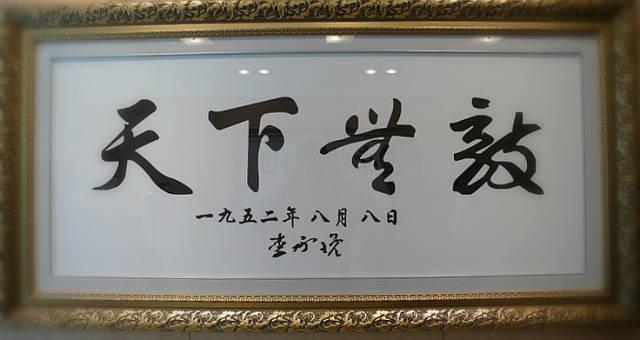 天下無敵
一九五二年 八月 八日
李承晚